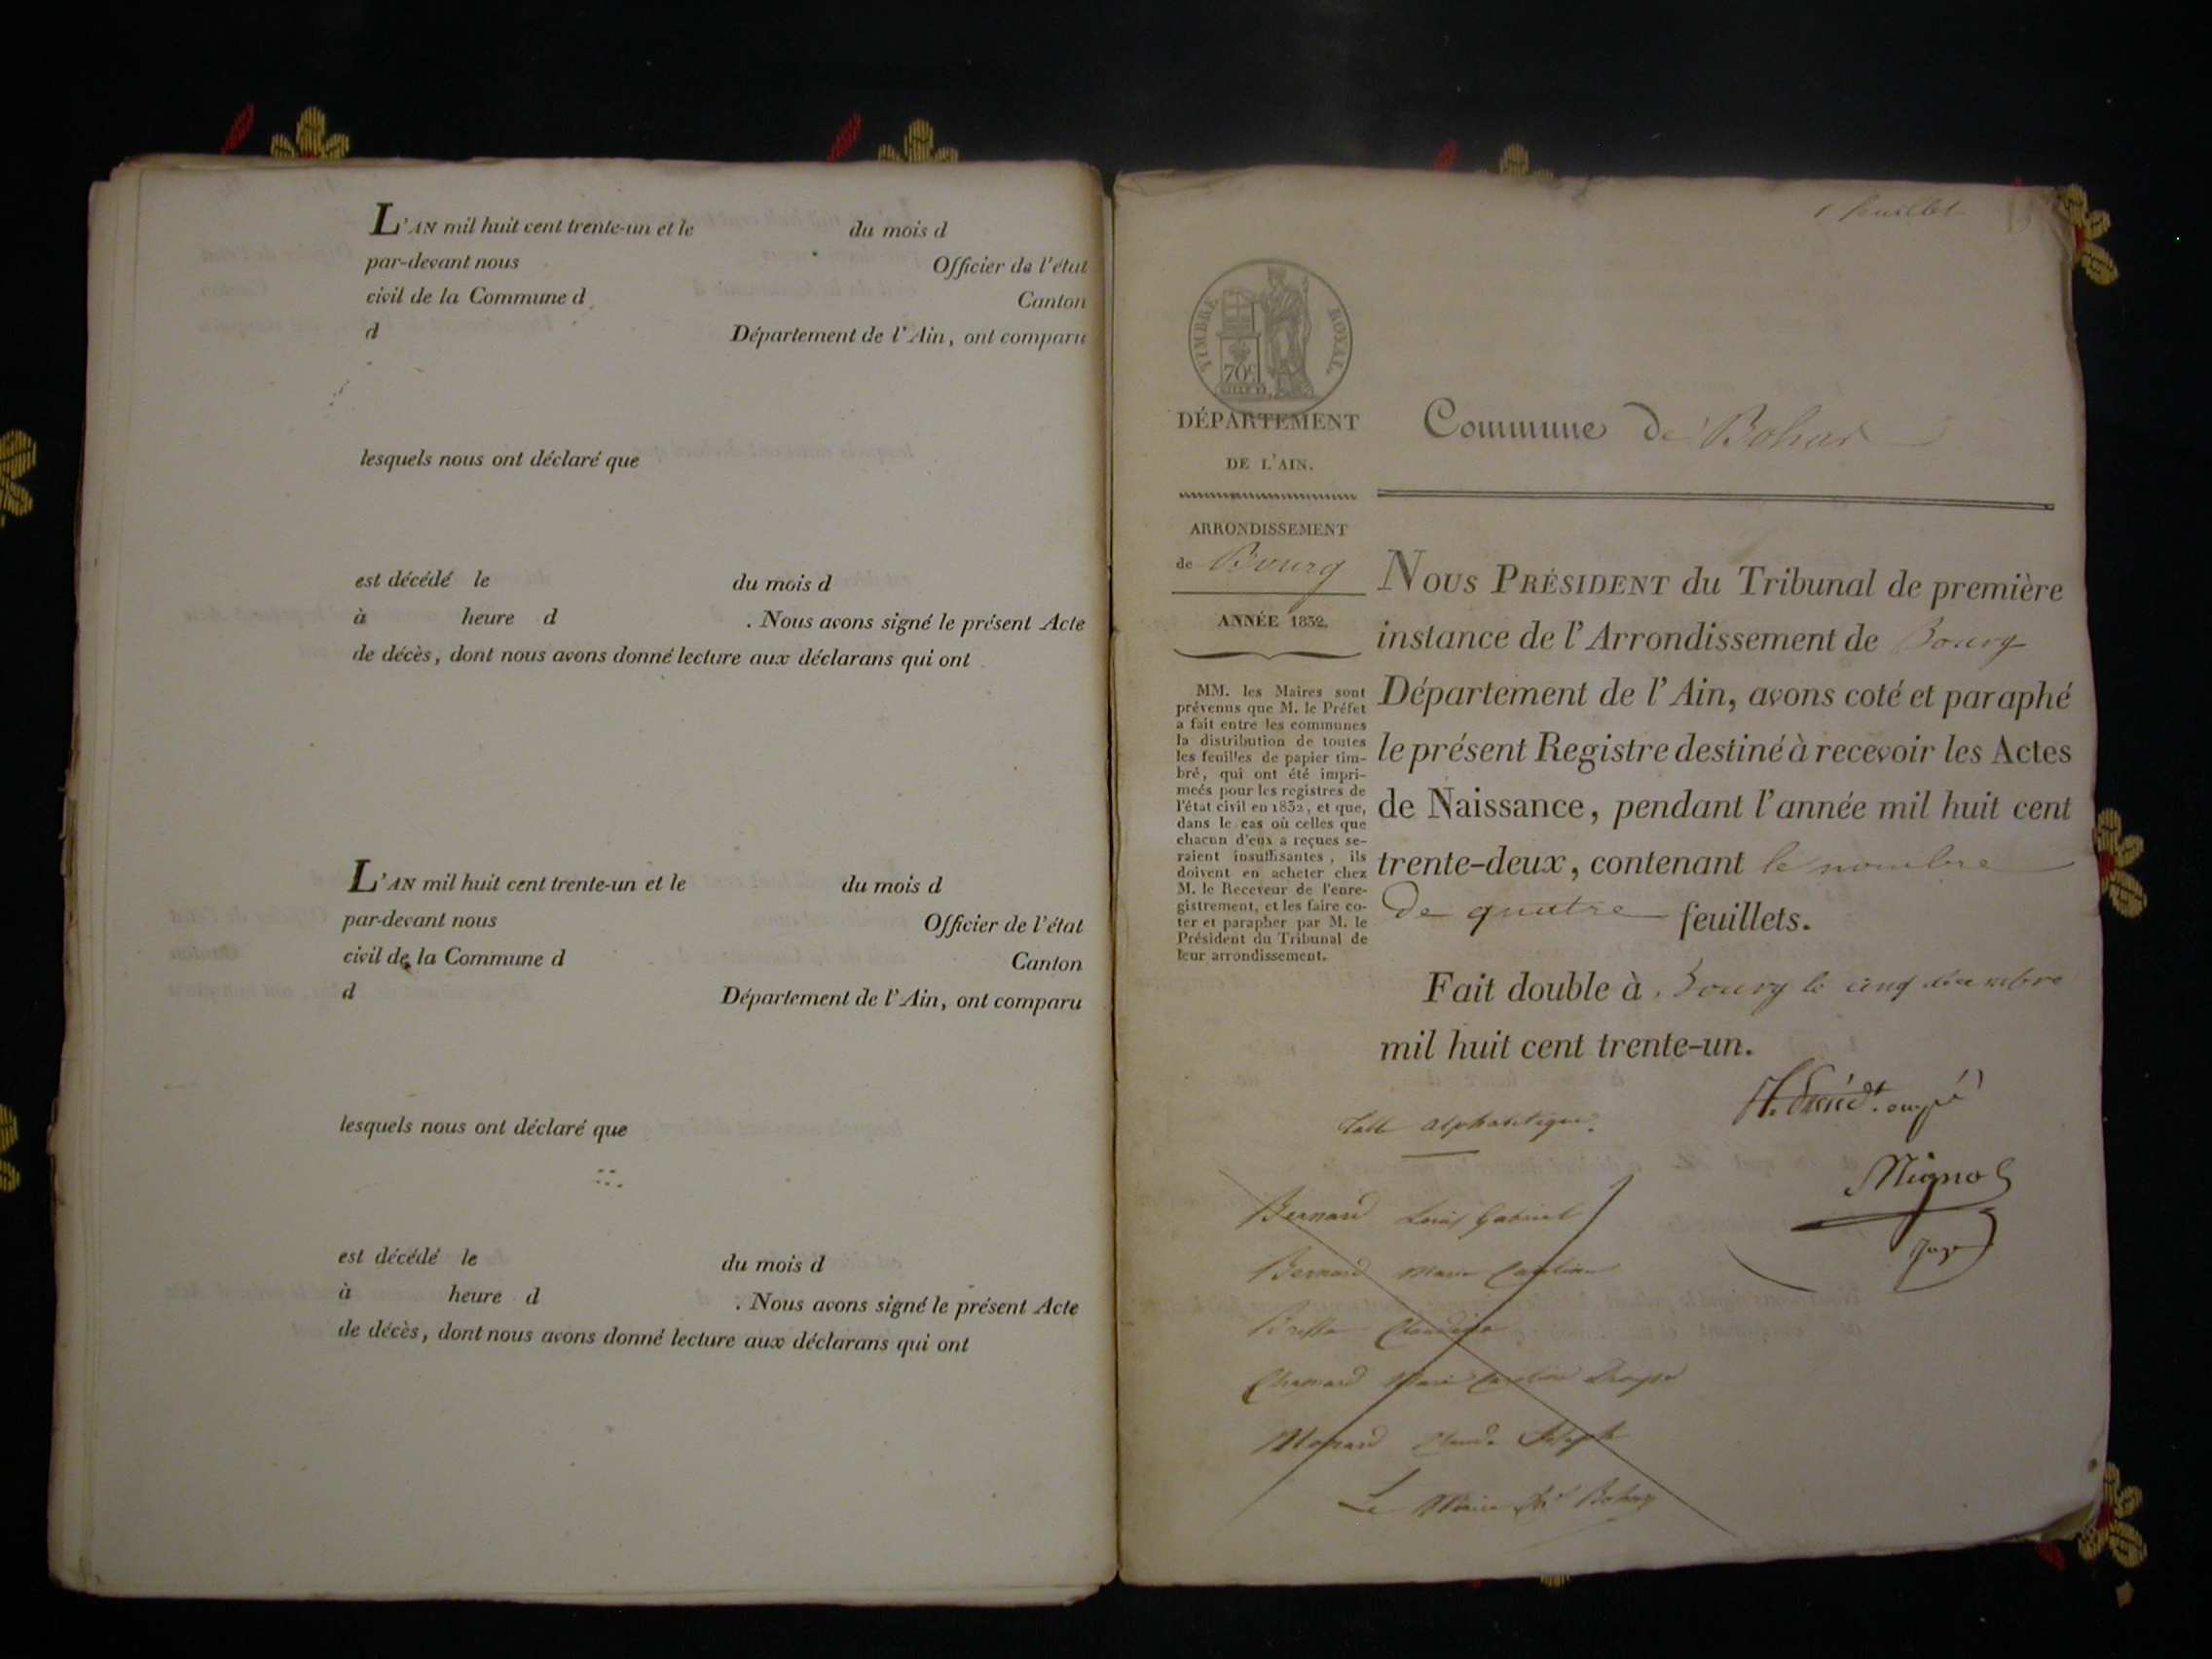 L'AN mil huit cent trente-un et le du mois d
par-devant nous Officier de l'état
civil de la Commune d Canton
d Département de l'Ain, ont comparu
lesquels nous ont déclaré que
est décédé le du mois d
à heure d . Nous avons signé le présent Acte
de décès, dont nous avons donné lecture aux déclarans qui ont
L'AN mil huit cent trente-un et le du mois d
par-devant nous Officier de l'état
civil de la Commune d Canton
d Département de l'Ain, ont comparu
lesquels nous ont déclaré que
est décédé le du mois d
à heure d . Nous avons signé le présent Acte
de décès, dont nous avons donné lecture aux déclarans qui ont
feuillet
TIMBRE ROYAL
70c
DÉPARTEMENT
DE L'AIN.
ARRONDISSEMENT
de Bourg
ANNÉE 1832.
MM. les Maires sont
prévenus que M. le Préfet
a fait entre les communes
la distribution de toutes
les feuilles de papier tim-
bré, qui ont été impri-
meés pour les registres de
l'état civil en 1832, et que,
dans le cas où celles que
chacun d'eux a reçues se-
raient insuffisantes, ils
doivent en acheter chez
M. le Receveur de l'enre-
gistrement, et les faire co-
ter et parapher par M. le
Président du Tribunal de
leur arrondissement.
Commune de Bohas
NOUS PRÉSIDENT du Tribunal de première
instance de l'Arrondissement de Bourg
Département de l'Ain, avons coté et paraphé
le présent Registre destiné à recevoir les Actes
de Naissance, pendant l'année mil huit cent
trente-deux, contenant le nombre
De quatre feuillets.
Fait double à Bourg le cinq décembre
mil huit cent trente-un.
Table alphabétique.
Mignot
Juge
Bernard Louis Gabriel
Bernard Marie Caroline
Claudine
Chanard Marie Caroline
Monard Claude Joseph
Le Maire de Bohas